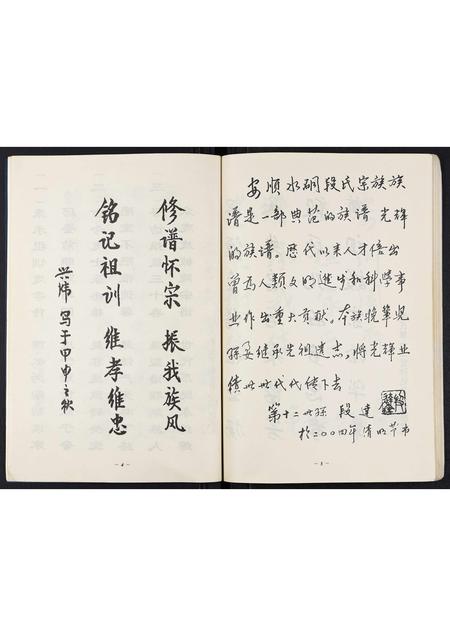 修谱怀宗 振我族风
铭记祖训 维孝维忠
兴炜 写于甲申之秋
- 4 -
安顺水硐段氏宗族族
谱是一部典范的族谱 光辉
的族谱。历代以来人才倍出
曾为人类文明进步和科学事
业作出重大贡献。本族晚辈儿
孙要继承先祖遗志，将光辉业
绩世世代代传下去
第十二世孙 段 达
于二00四年清明节书